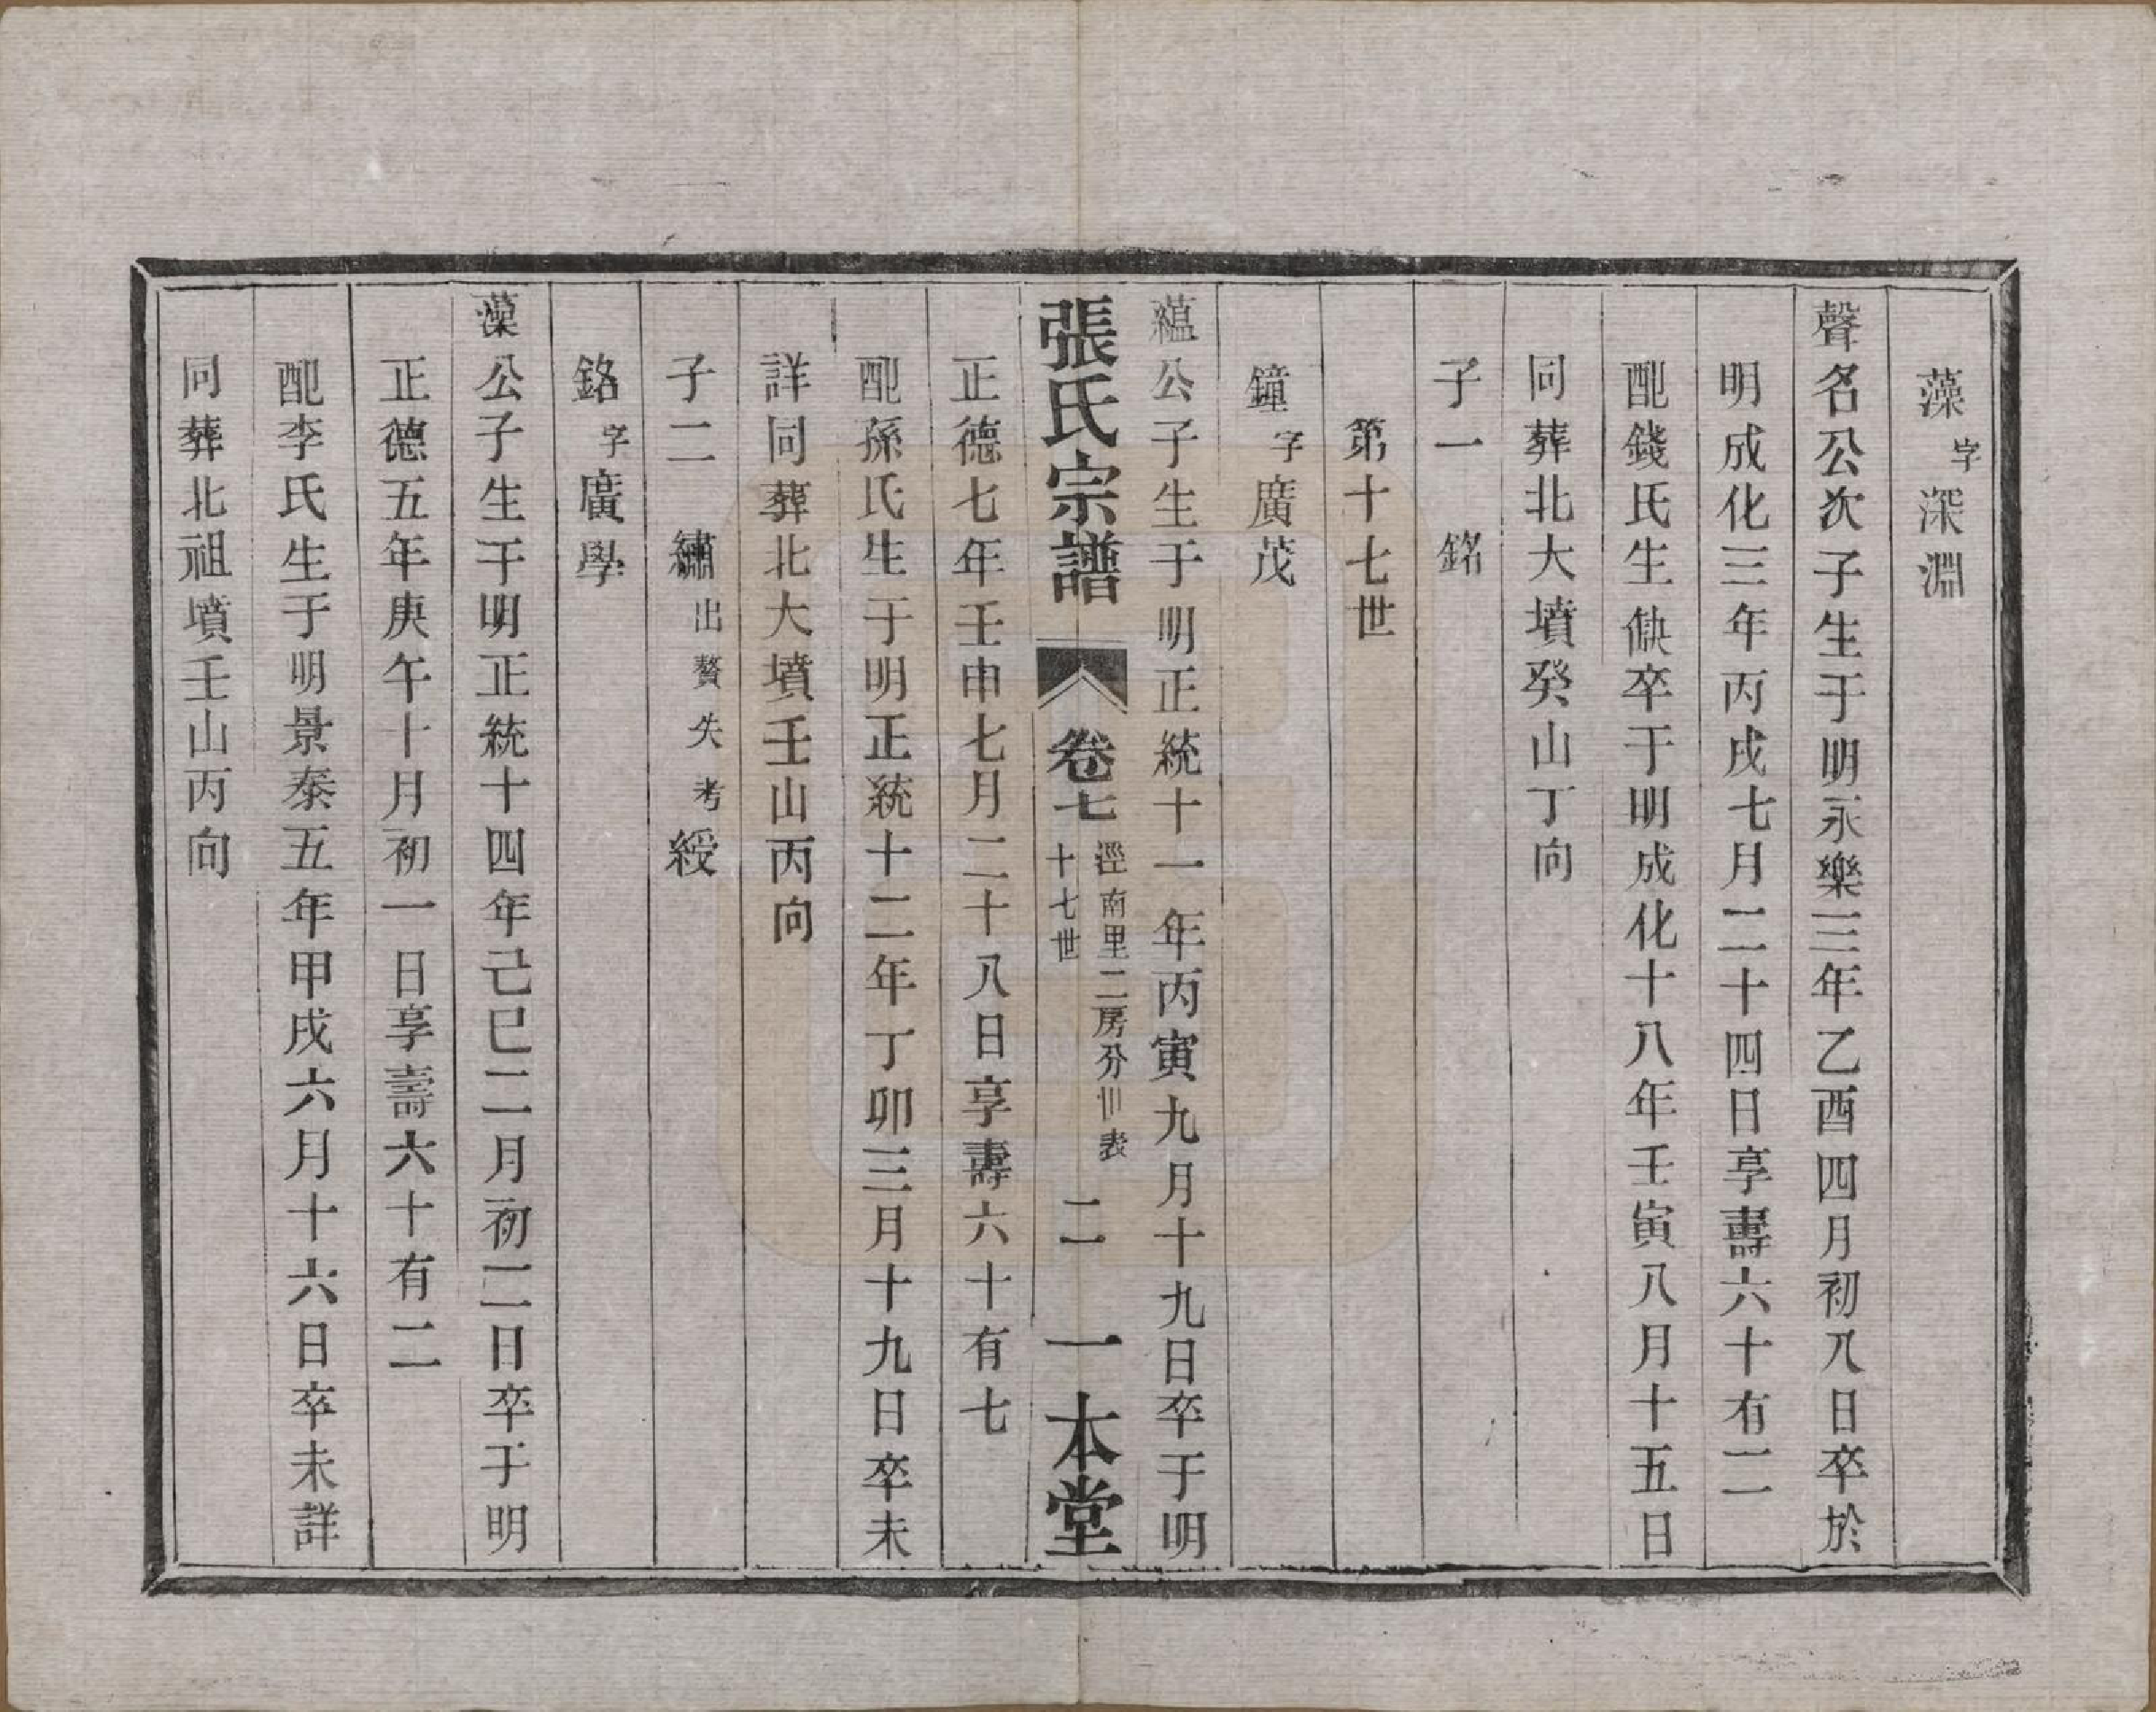 藻字深淵
聲名公次子生于明永樂三年乙酉四月初八日卒於
明成化三年丙戌七月二十四日享壽六十有二
配錢氏生缺卒于明成化十八年壬寅八月十五日
同葬北大墳癸山丁向
子一 銘
第十七世
鐘字廣茂
蘊公子生于明正統十一年丙寅九月十九日卒于明
張氏宗譜 卷七 涇南里二房分世表 十七世 二 一本堂
正德七年壬申七月二十八日享壽六十有七
配孫氏生于明正統十二年丁卯三月十九日卒未
詳同葬北大墳壬山丙向
子二 繡出贅失考 綬
銘字廣學
藻公子生于明正統十四年己巳二月初二日卒于明
正德五年庚午十月初一日享壽六十有二
配李氏生于明景泰五年甲戌六月十六日卒未詳
同葬北祖墳壬山丙向